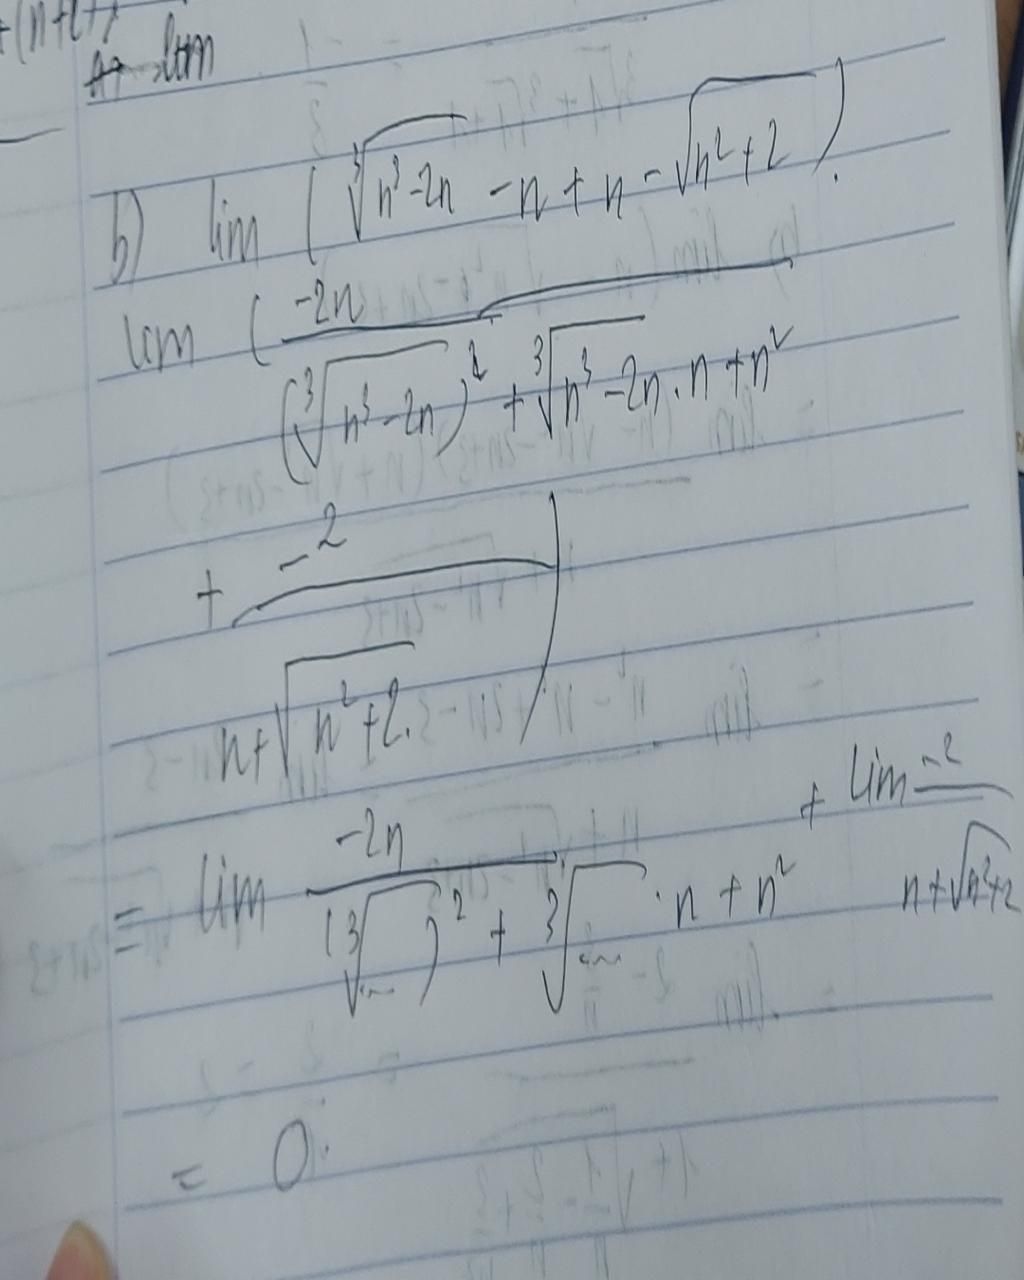 +(n+1+)
lim
b) lim ( ∛(n³-2n) - n + n - √(n²+2) ).
lim ( -2n / ( (∛(n³-2n))² + ∛(n³-2n) . n + n² )
+ -2 / ( n+√(n²+2.) ) )
= lim -2n / ( (∛...)² + ∛... . n + n² ) + lim -2 / ( n+√(n²+2) )
= 0.